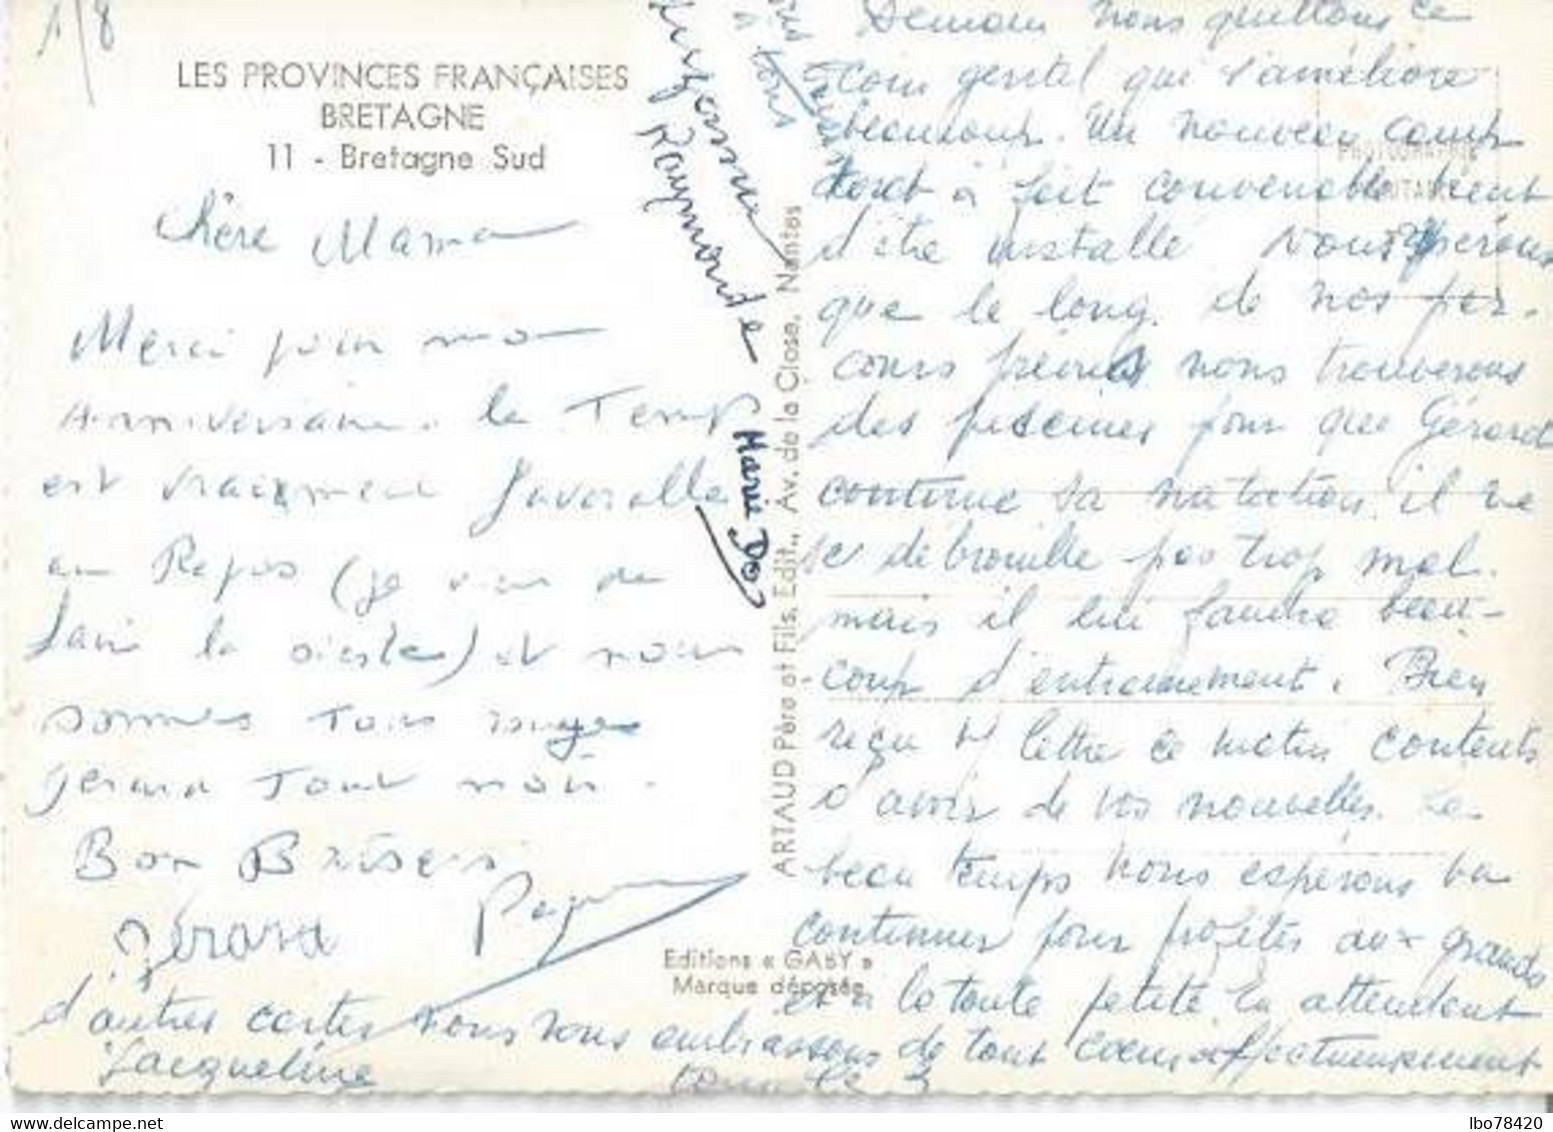 1/8
LES PROVINCES FRANÇAISES
BRETAGNE
11 - Bretagne Sud
Chère Maman
Merci pour mon
anniversaire. le Temps
est vraiment favorable
au Repos (je viens de
faire la sieste) et nous
sommes Tous rouges
gerard Tout noir.
Bon Baisers
Gérard
d'autres cartes nous vous embrassons de tout coeur affectueusement
Jacqueline
Raymonde
Marie Do
à tous
ARTAUD Père et Fils, Edit., Av. de la Close, Nantes
Editions « GABY »
Marque déposée
Demain nous quittons ce
coin gentil qui s'améliore
beaucoup. Un nouveau camp
tout à fait convenable vient
d'être installé Nous espérons
que le long de nos par-
cours prévus nous trouverons
des piscines pour que Gérard
continue sa natation. il ne
se debrouille pas trop mal.
mais il lui faudra beau-
coup d'entrainement. Bien
reçu lettre ce matin contents
d'avoir de vos nouvelles. Le
beau temps nous espérons va
continuer pour profiter aux grands
et à la toute petite. En attendant
PHOTOGRAPHIE